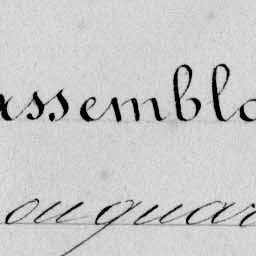 assembla
ou quar